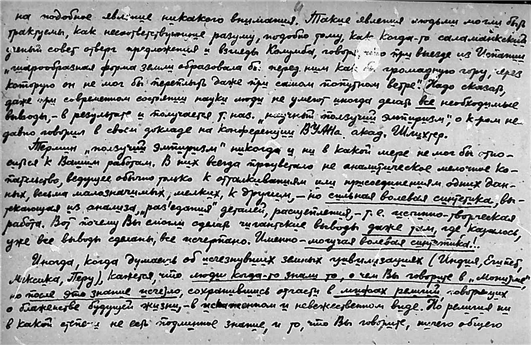 на подобное явление никакого внимания. Такие явления людьми могли быть
трактуемы, как несоответствующие разуму, подобно тому, как когда-то саламанкский
ученый совет отверг предложения и взгляды Колумба, говоря, что при выезде из Испании
"шарообразная форма земли образовала бы перед ним как бы громадную гору, через
которую он не мог бы переплыть даже при самом попутном ветре". Надо сказать,
даже при современном состоянии науки люди не умеют иногда делать все необходимые
выводы, - в результате и получается т. наз. "научный ползучий эмпиризм", о к-ром не-
давно говорил в своем докладе на конференции ВУАНа акад. Шлихтер.
Термин "ползучий эмпиризм" никогда и ни в какой мере не мог бы отно-
ситься к Вашим работам. В них всегда процветало не аналитическое мелочное ко-
пательство, ведущее обычно только к отталкиваниям или присоединениям одних дан-
ных, весьма малозначимых, мелких, к другим, - но сильная волевая синтетика, вы-
текающая из анализа, "раз'едания" деталей, расщепления, - т.е. истинно-творческая
работа. Вот почему Вы смогли сделать гигантские выводы даже там, где казалось,
уже все выводы сделаны, все исчерпано. Именно - могучая волевая синтетика!
Иногда, когда думаешь об исчезнувших земных цивилизациях (Индия, Египет,
Мексика, Перу) кажется, что люди когда-то знали то, о чем Вы говорите в "Монизме"
но после это знание исчезло, сохранившись отчасти в мифах религий говорящих
о блаженстве будущей жизни, - в искаженном и невежественном виде. Но религия ни
в какой степени не есть подлинное знание, и то, что Вы говорите, ничего общего